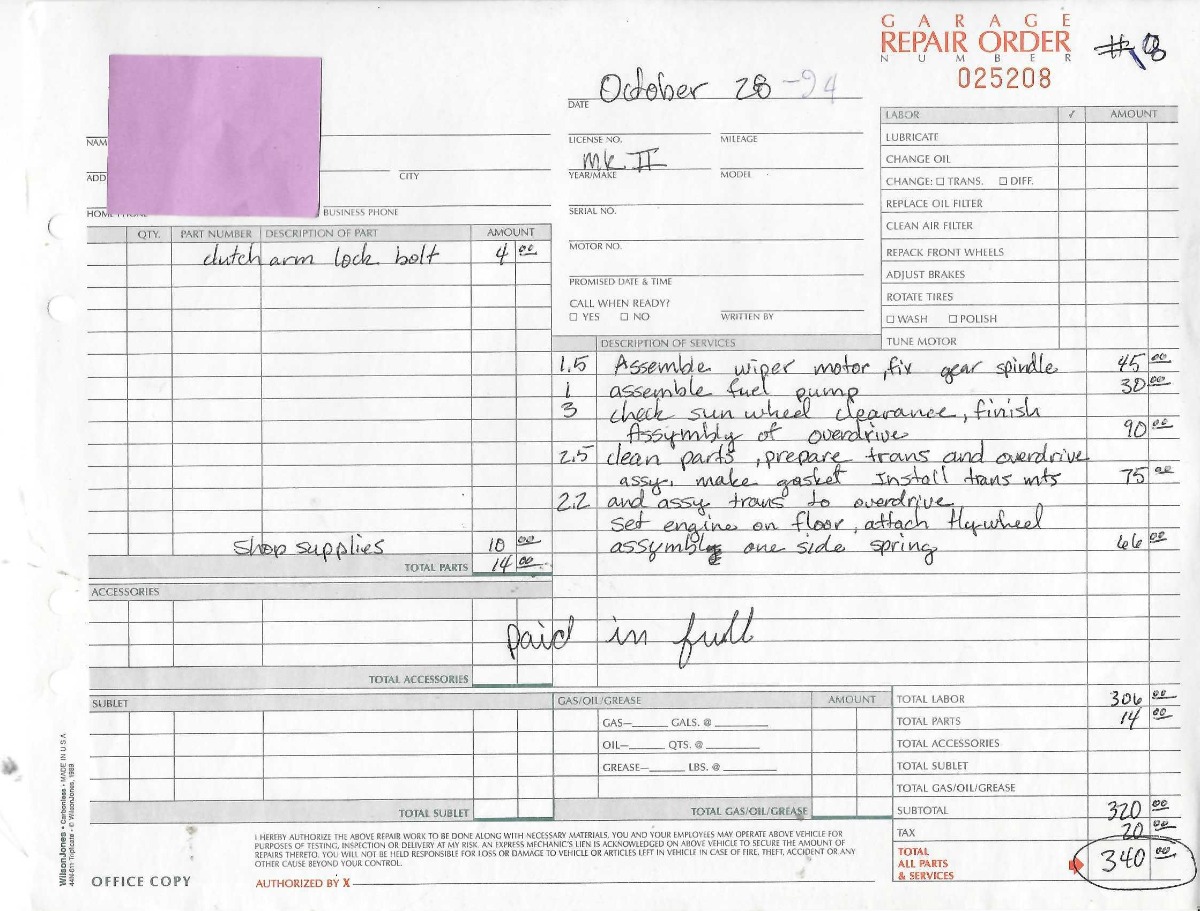 GARAGE
REPAIR ORDER
NUMBER
025208
October 28 -94
DATE
NAM
ADD
CITY
HOME PHONE
BUSINESS PHONE
LICENSE NO.
MILEAGE
mk II
YEAR/MAKE
MODEL
SERIAL NO.
MOTOR NO.
PROMISED DATE & TIME
CALL WHEN READY?
☐ YES ☐ NO
WRITTEN BY
LABOR ✓ AMOUNT
LUBRICATE
CHANGE OIL
CHANGE: ☐ TRANS. ☐ DIFF.
REPLACE OIL FILTER
CLEAN AIR FILTER
REPACK FRONT WHEELS
ADJUST BRAKES
ROTATE TIRES
☐ WASH ☐ POLISH
TUNE MOTOR
QTY. PART NUMBER DESCRIPTION OF PART AMOUNT
clutch arm lock bolt 4 00
shop supplies 10 00
TOTAL PARTS 14 00
DESCRIPTION OF SERVICES
1.5 Assemble wiper motor, fix gear spindle 45 00
1 assemble fuel pump 30 00
3 check sun wheel clearance, finish
Assymbly of overdrive 90 00
2.5 clean parts, prepare trans and overdrive
assy, make gasket Install trans mts 75 00
2.2 and assy trans to overdrive
set engine on floor, attach flywheel
assembly one side spring 66 00
ACCESSORIES
paid in full
TOTAL ACCESSORIES
SUBLET
TOTAL SUBLET
GAS/OIL/GREASE AMOUNT
GAS—______ GALS. @ ______
OIL—______ QTS. @ ______
GREASE—______ LBS. @ ______
TOTAL GAS/OIL/GREASE
TOTAL LABOR 306 00
TOTAL PARTS 14 00
TOTAL ACCESSORIES
TOTAL SUBLET
TOTAL GAS/OIL/GREASE
SUBTOTAL 320 00
TAX 20 00
TOTAL
ALL PARTS
& SERVICES
340 00
I HEREBY AUTHORIZE THE ABOVE REPAIR WORK TO BE DONE ALONG WITH NECESSARY MATERIALS. YOU AND YOUR EMPLOYEES MAY OPERATE ABOVE VEHICLE FOR
PURPOSES OF TESTING, INSPECTION OR DELIVERY AT MY RISK. AN EXPRESS MECHANIC'S LIEN IS ACKNOWLEDGED ON ABOVE VEHICLE TO SECURE THE AMOUNT OF
REPAIRS THERETO. YOU WILL NOT BE HELD RESPONSIBLE FOR LOSS OR DAMAGE TO VEHICLE OR ARTICLES LEFT IN VEHICLE IN CASE OF FIRE, THEFT, ACCIDENT OR ANY
OTHER CAUSE BEYOND YOUR CONTROL.
OFFICE COPY
AUTHORIZED BY X
WilsonJones • Carbonless • MADE IN U.S.A
Triplicate • © WilsonJones, 1989